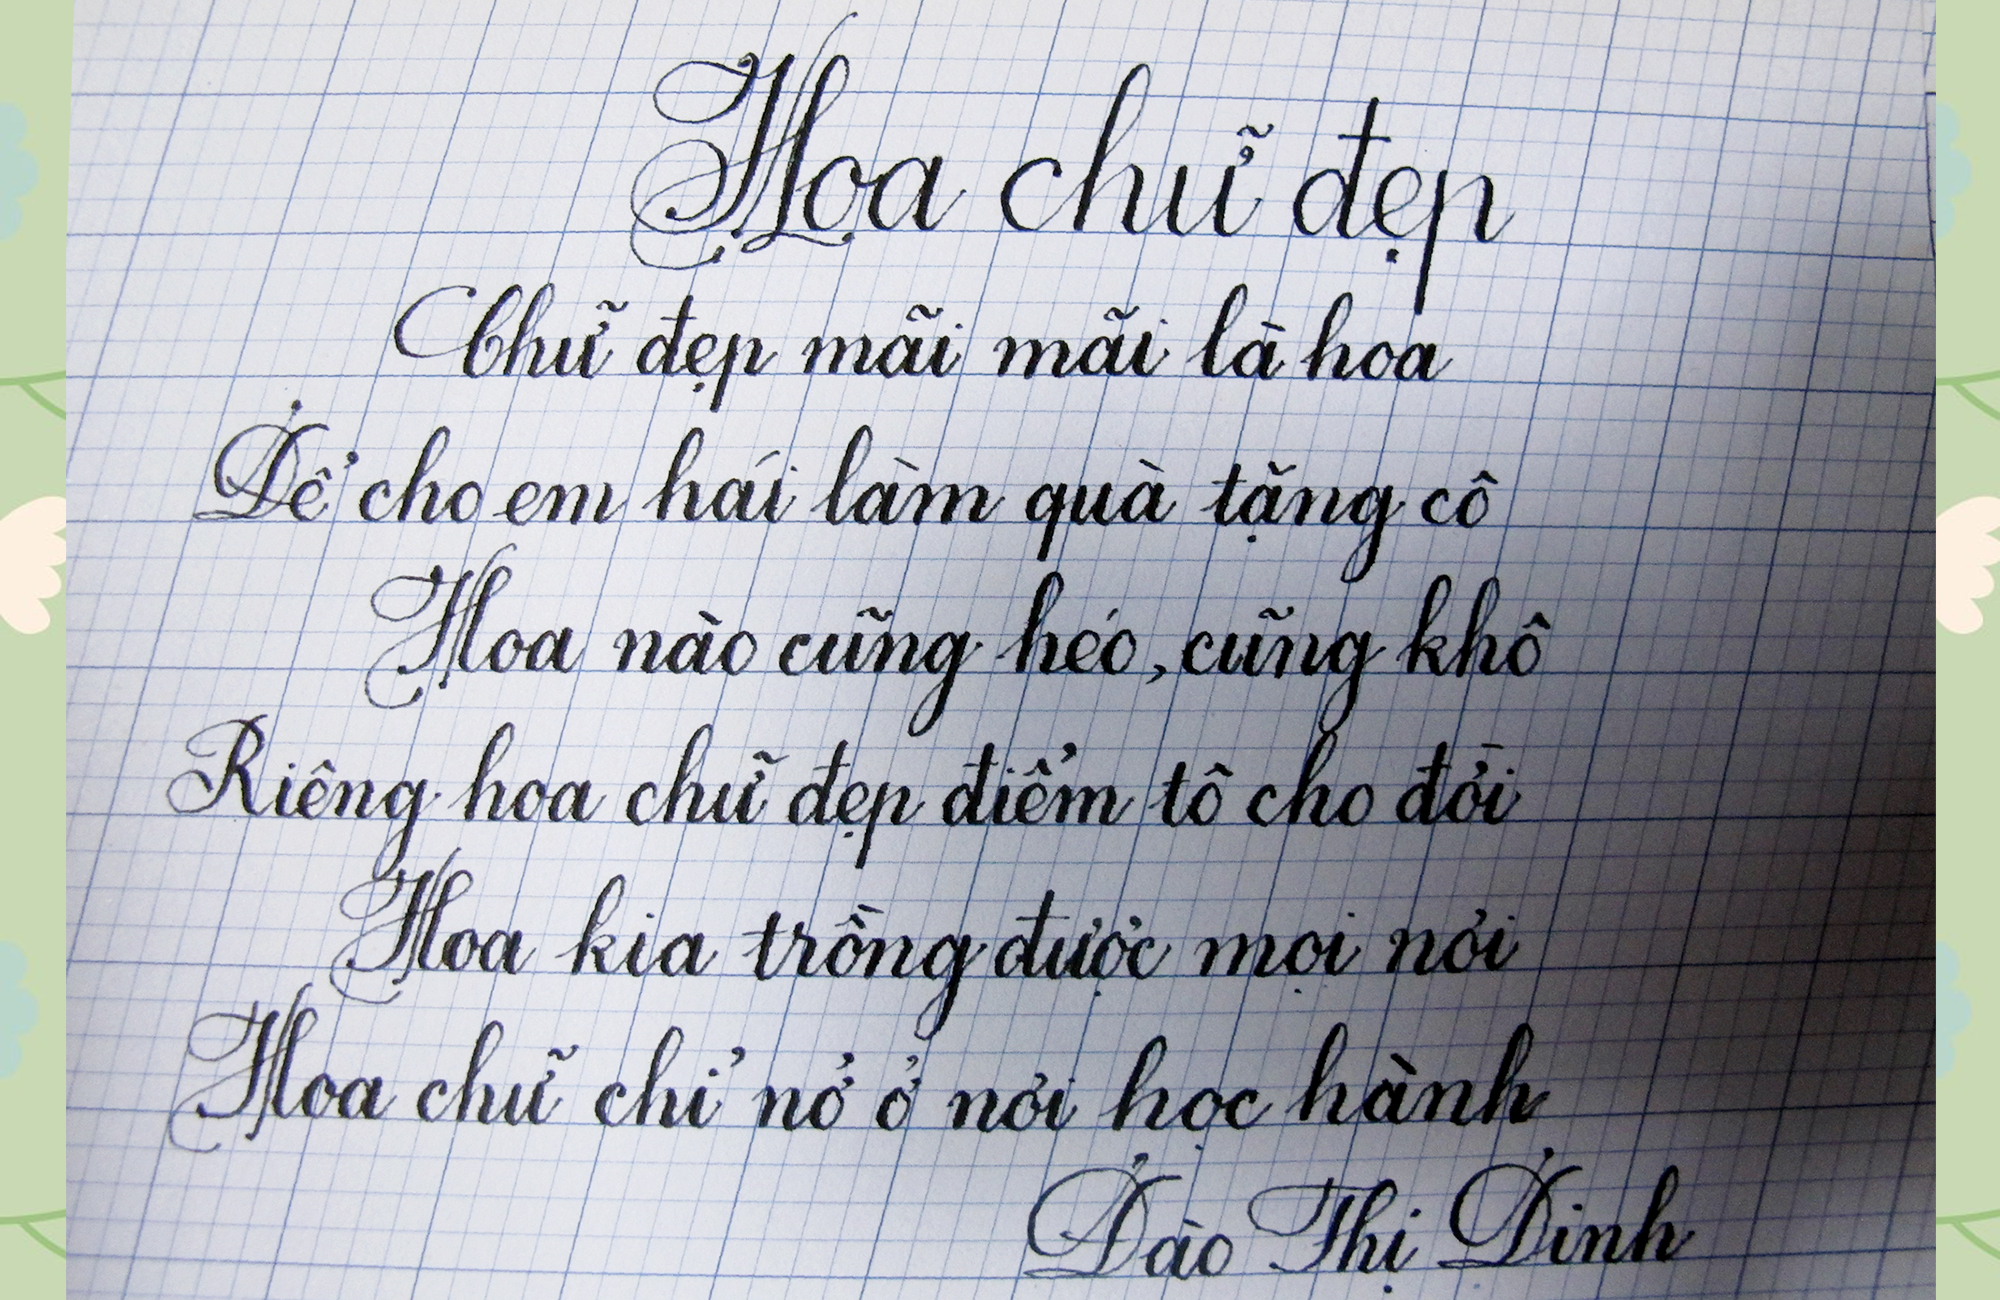 Hoa chữ đẹp
Chữ đẹp mãi mãi là hoa
Để cho em hái làm quà tặng cô
Hoa nào cũng héo, cũng khô
Riêng hoa chữ đẹp điểm tô cho đời
Hoa kia trồng được mọi nơi
Hoa chữ chỉ nở ở nơi học hành
Đào Thị Đinh